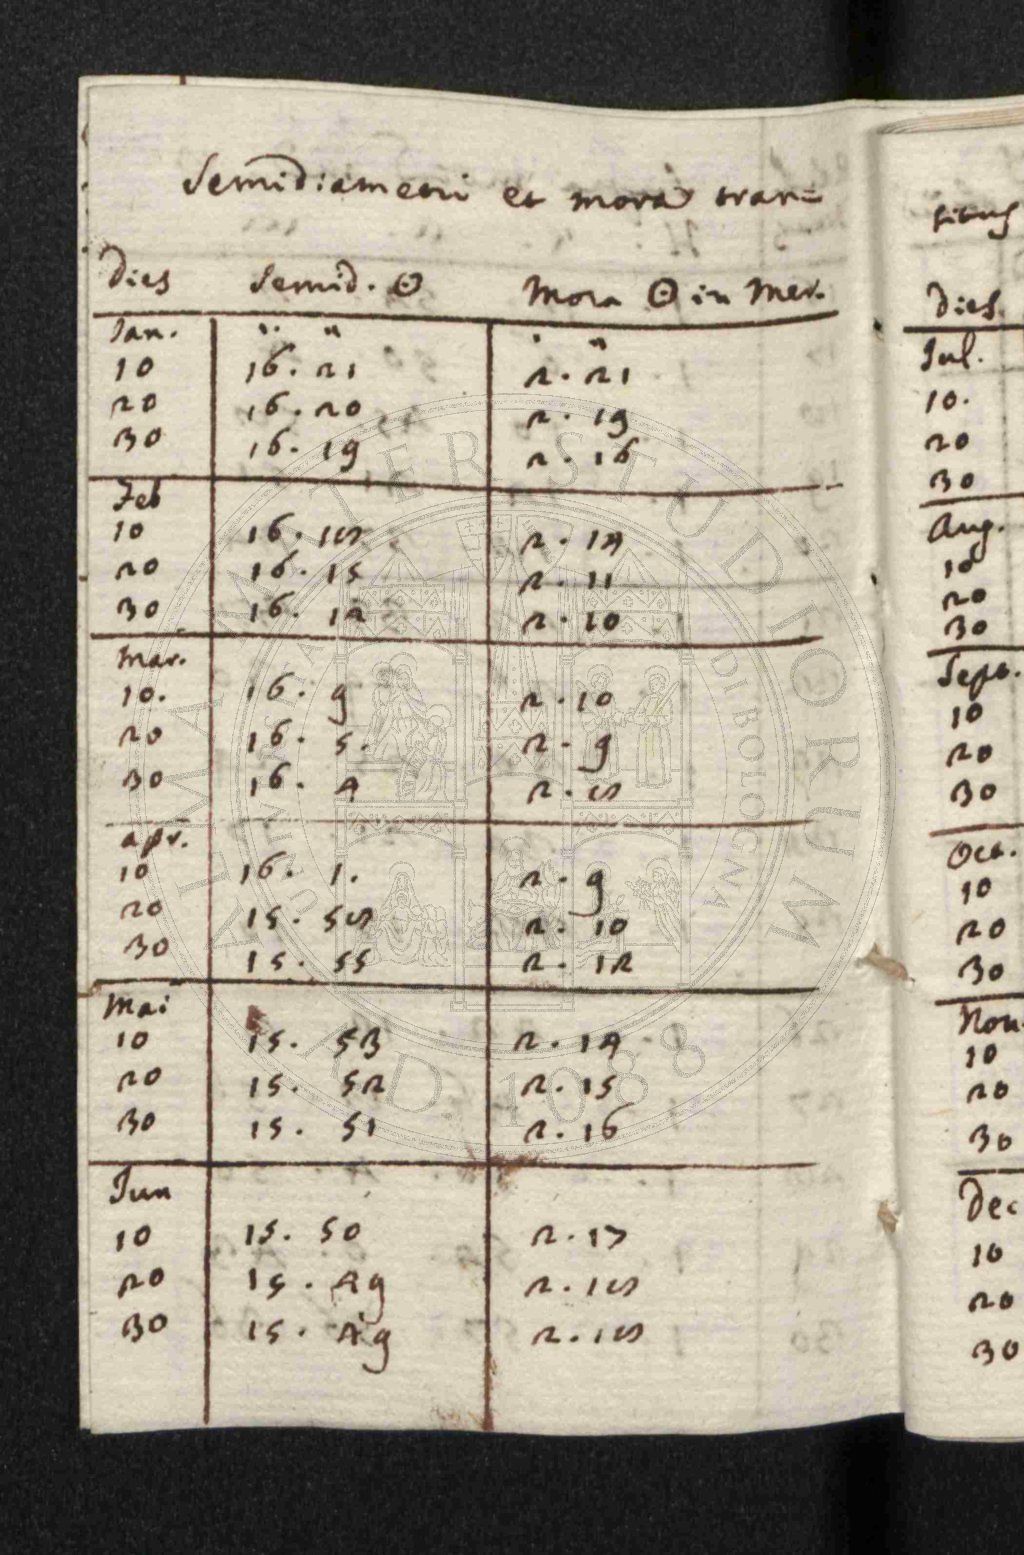 Semidiametri et mora tran=
Dies Semid. ☉ Mora ☉ in Mer.
Jan. ' " ' "
10 16. 21 2. 21
20 16. 20 2. 19
30 16. 19 2. 16
Feb
10 16. 18 2. 14
20 16. 15 2. 11
30 16. 12 2. 10
Mar.
10. 16. 9 2. 10
20 16. 5. 2. 9
30 16. 4 2. 8
apr.
10 16. 1. 2. 9
20 15. 58 2. 10
30 15. 55 2. 12
Mai
10 15. 53 2. 14
20 15. 52 2. 15
30 15. 51 2. 16
Jun
10 15. 50 2. 17
20 15. 49 2. 18
30 15. 49 2. 18
situs
Dies
Jul.
10.
20
30
Aug.
10
20
30
Sept.
10
20
30
Oct.
10
20
30
Nov.
10
20
30
Dec
10
20
30
ALMA MATER STUDIORUM
A.D. 1088
UNIVERSITÀ DI BOLOGNA